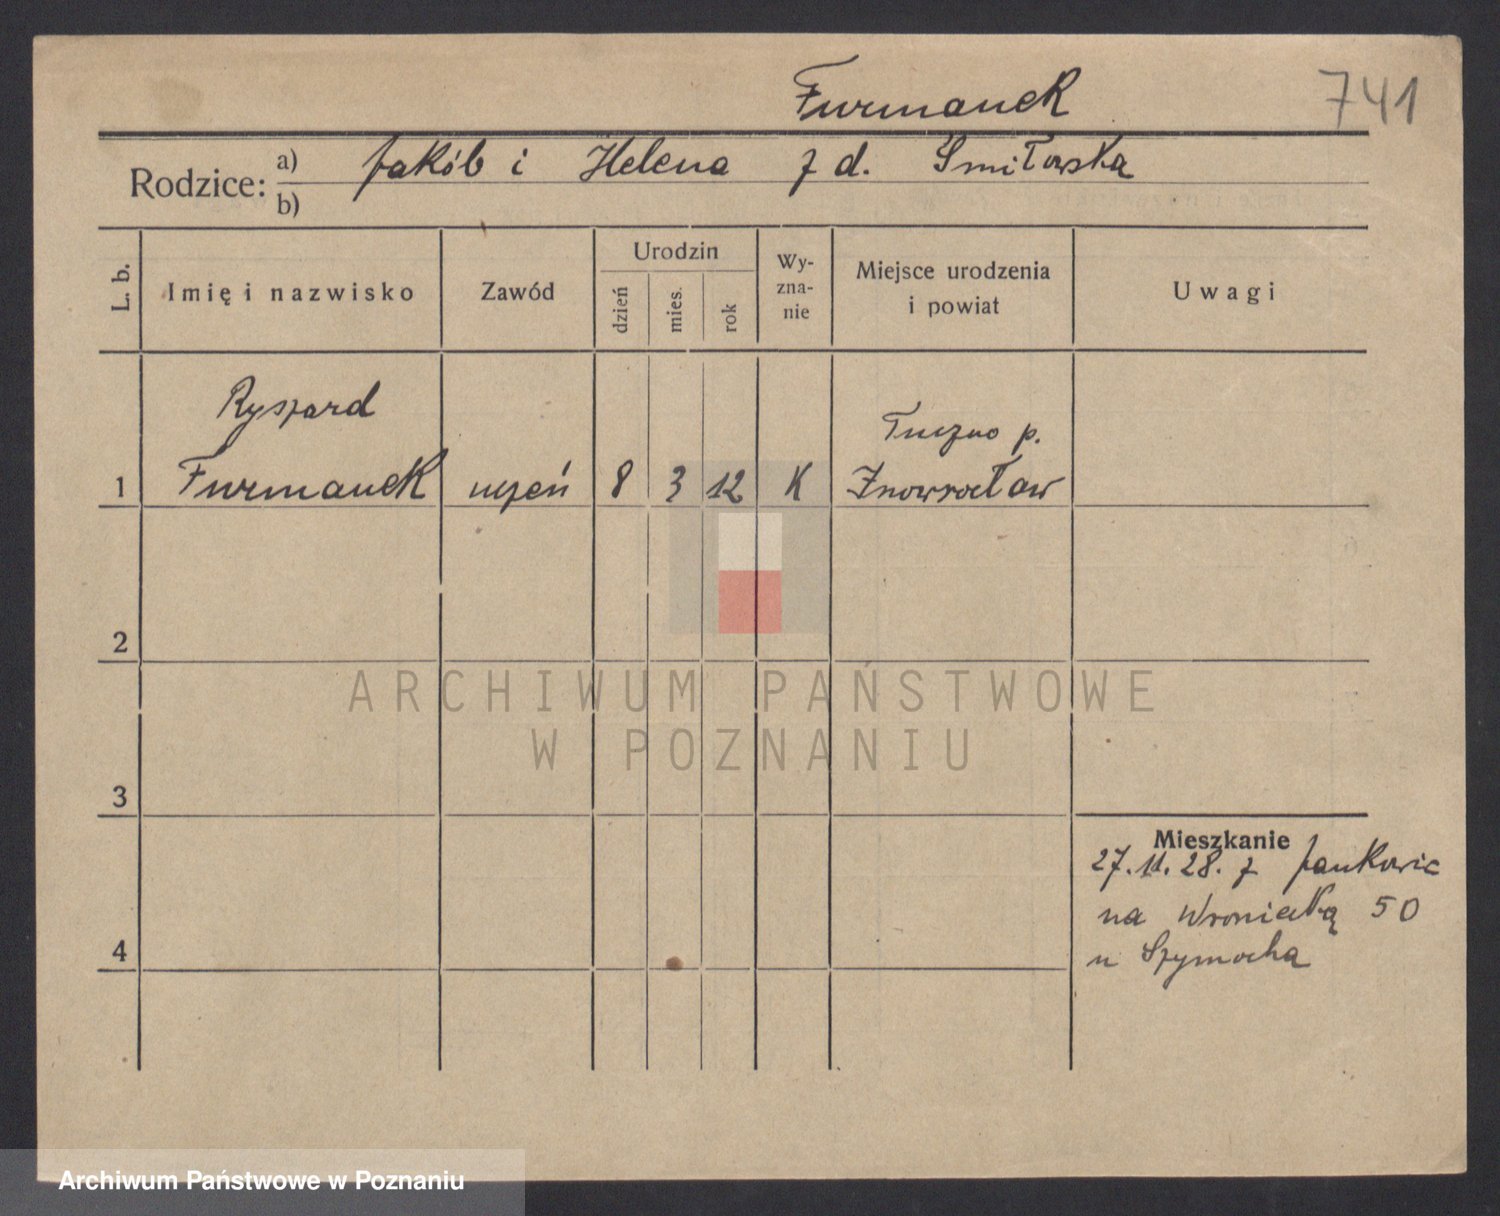 Furmanek
741
Rodzice: a) Jakób i Helena z d. Smiłowska
b)
L. b.
Imię i nazwisko
Zawód
Urodzin
dzień
mies.
rok
Wy-
zna-
nie
Miejsce urodzenia
i powiat
Uwagi
Ryszard
Tuczno p.
1 Furmanek uczeń 8 3 12 K Inowrocław
2
ARCHIWUM PAŃSTWOWE
W POZNANIU
3
Mieszkanie
27.11.28. z Jankowic
na Wroniecką 50
4
u Szymocha
Archiwum Państwowe w Poznaniu